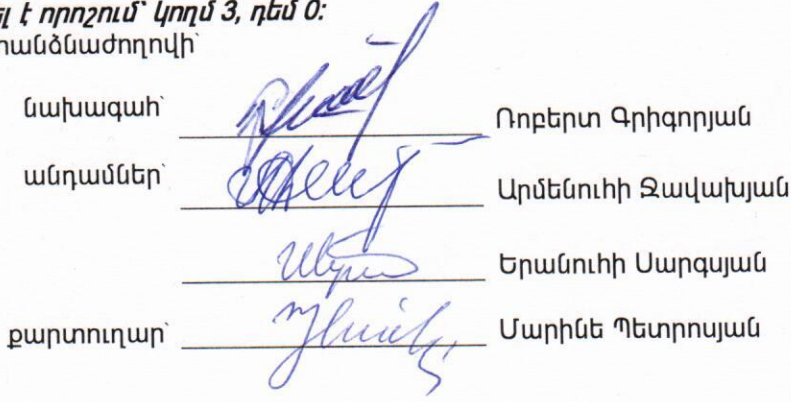 է որոշում՝ կողմ 3, դեմ 0:
նախագահ՝ Ռոբերտ Գրիգորյան
անդամներ՝ Արմենուհի Ջավախյան
Երանուհի Սարգսյան
քարտուղար՝ Մարինե Պետրոսյան